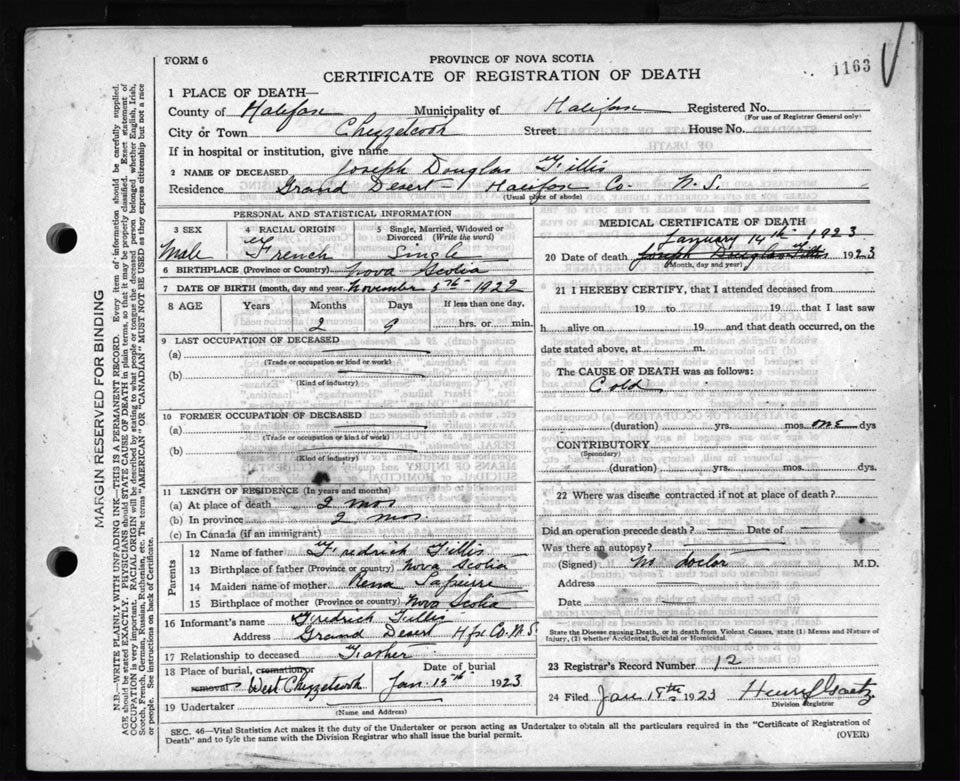 FORM 6
PROVINCE OF NOVA SCOTIA
CERTIFICATE OF REGISTRATION OF DEATH
1163
1 PLACE OF DEATH—
County of Halifax Municipality of Halifax Registered No.
(For use of Registrar General only)
City or Town Chezzetcook Street House No.
If in hospital or institution, give name
2 NAME OF DECEASED Joseph Douglas Fillis
Residence Grand Desert - Halifax Co. N.S.
(Usual place of abode)
PERSONAL AND STATISTICAL INFORMATION
3 SEX Male
4 RACIAL ORIGIN French
5 Single, Married, Widowed or Divorced (Write the word) Single
6 BIRTHPLACE (Province or Country) Nova Scotia
7 DATE OF BIRTH (month, day and year) November 5th 1922
8 AGE Years Months Days If less than one day,
2 9 hrs. or min.
9 LAST OCCUPATION OF DECEASED
(a)
(Trade or occupation or kind or work)
(b)
(Kind of industry)
10 FORMER OCCUPATION OF DECEASED
(a)
(Trade or occupation or kind of work)
(b)
(Kind of industry)
11 LENGTH OF RESIDENCE (In years and months)
(a) At place of death 2 mos
(b) In province 2 mos.
(c) In Canada (if an immigrant)
Parents
12 Name of father Fredrick Fillis
13 Birthplace of father (Province or country) Nova Scotia
14 Maiden name of mother Rena Lapierre
15 Birthplace of mother (Province or country) Nova Scotia
16 Informant's name Fredrick Fillis
Address Grand Desert Hfx Co. N.S.
17 Relationship to deceased Father
18 Place of burial, cremation or removal West Chezzetcook
Date of burial Jan. 15th 1923
19 Undertaker
(Name and Address)
MEDICAL CERTIFICATE OF DEATH
January 14th 1923
20 Date of death Joseph Douglas Fillis 1923
(Month, day and year)
21 I HEREBY CERTIFY, that I attended deceased from
19 to 19 that I last saw
h alive on 19 and that death occurred, on the
date stated above, at m.
The CAUSE OF DEATH was as follows:
Cold
(duration) yrs. mos. one dys
CONTRIBUTORY
(Secondary)
(duration) yrs. mos. dys.
22 Where was disease contracted if not at place of death?
Did an operation precede death? Date of
Was there an autopsy?
(Signed) no doctor M.D.
Address
Date
State the Disease causing Death, or in death from Violent Causes, state (1) Means and Nature of
Injury, (2) whether Accidental, Suicidal or Homicidal.
23 Registrar's Record Number 12
24 Filed Jan 18th 1923
Division Registrar
SEC. 46—Vital Statistics Act makes it the duty of the Undertaker or person acting as Undertaker to obtain all the particulars required in the "Certificate of Registration of
Death" and to fyle the same with the Division Registrar who shall issue the burial permit. (OVER)
MARGIN RESERVED FOR BINDING
N.B.—WRITE PLAINLY WITH UNFADING INK—THIS IS A PERMANENT RECORD. Every item of information should be carefully supplied.
AGE should be stated EXACTLY. PHYSICIANS should STATE CAUSE OF DEATH in plain terms, so that it may be properly classified. Exact statement of
OCCUPATION is very important. RACIAL ORIGIN will be described by stating to what people or tongue the deceased person belonged whether English, Irish,
Scotch, French, German, Russian, Ruthenian, etc. The terms "AMERICAN" OR "CANADIAN" MUST NOT BE USED as they express citizenship but not a race
or people. See instructions on back of Certificate.